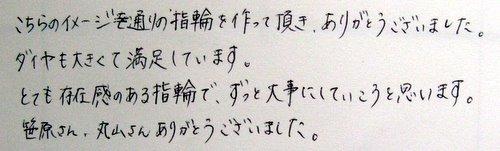 こちらのイメージ通りの指輪を作って頂き、ありがとうございました。
ダイヤも大きくて満足しています。
とても存在感のある指輪で、ずっと大事にしていこうと思います。
笹原さん、丸山さんありがとうございました。